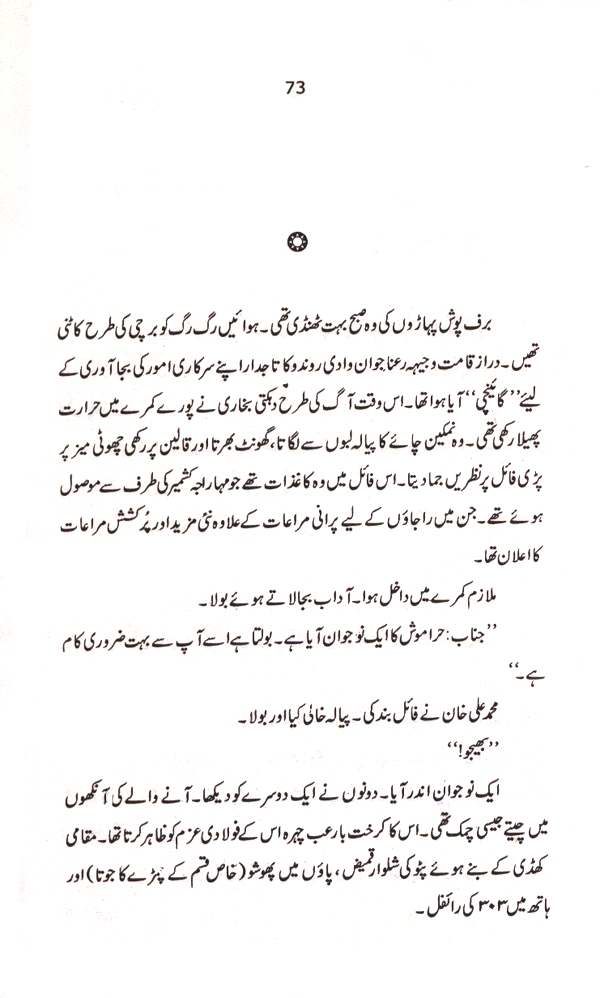 73
برف پوش پہاڑوں کی وہ صبح بہت ٹھنڈی تھی۔ ہوائیں رگ رگ کو برچی کی طرح کاٹتی
تھیں۔ دراز قامت وجیہہ رعنا جوان وادی روندو کا تاجدار اپنے سرکاری امور کی بجا آوری کے
لیئے ’’گائنچی‘‘ آیا ہوا تھا۔ اس وقت آگ کی طرح دہکتی بخاری نے پورے کمرے میں حرارت
پھیلا رکھی تھی۔ وہ نمکین چائے کا پیالہ لبوں سے لگاتا، گھونٹ بھرتا اور قالین پر رکھی چھوٹی میز پر
پڑی فائل پر نظریں جما دیتا۔ اس فائل میں وہ کاغذات تھے جو مہاراجہ کشمیر کی طرف سے موصول
ہوئے تھے۔ جن میں راجاؤں کے لیے پرانی مراعات کے علاوہ نئی مزید اور پُرکشش مراعات
کا اعلان تھا۔
ملازم کمرے میں داخل ہوا۔ آداب بجا لاتے ہوئے بولا۔
’’جناب: حراموش کا ایک نوجوان آیا ہے۔ بولتا ہے اسے آپ سے بہت ضروری کام
ہے۔‘‘
محمد علی خان نے فائل بند کی۔ پیالہ خالی کیا اور بولا۔
’’بھیجو!‘‘
ایک نوجوان اندر آیا۔ دونوں نے ایک دوسرے کو دیکھا۔ آنے والے کی آنکھوں
میں چیتے جیسی چمک تھی۔ اس کا کرخت بارعب چہرہ اس کے فولادی عزم کو ظاہر کرتا تھا۔ مقامی
کھڈی کے بنے ہوئے پٹو کی شلوار قمیض، پاؤں میں پھوشو (خاص قسم کے چمڑے کا جوتا) اور
ہاتھ میں ۳۰۳ کی رائفل۔